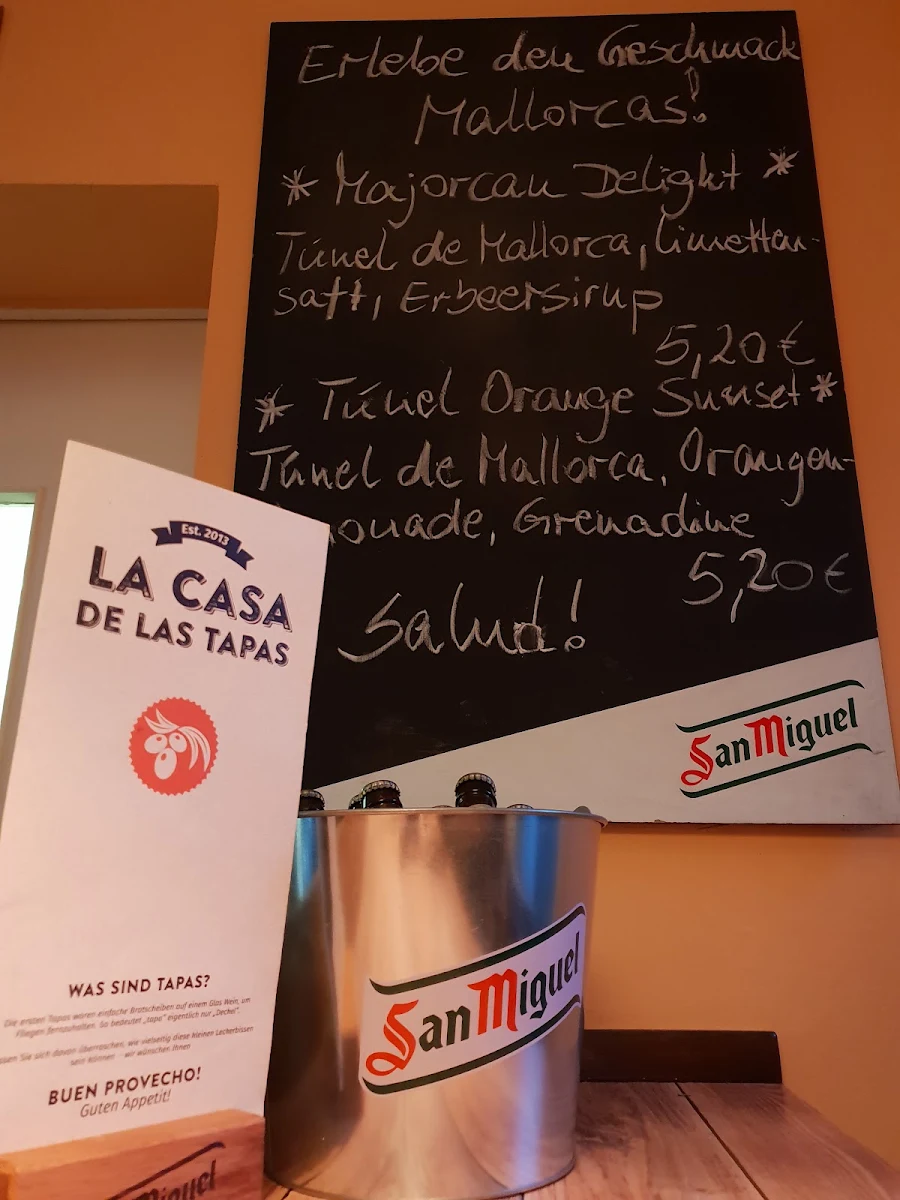 Erlebe den Geschmack
Mallorcas!
* Majorcan Delight *
Túnel de Mallorca, Limetten-
saft, Erbeersirup
5,20 €
* Túnel Orange Sunset *
Túnel de Mallorca, Orangen-
nouade, Grenadine
5,20 €
Salud!
San Miguel
Est. 2013
LA CASA
DE LAS TAPAS
WAS SIND TAPAS?
Die ersten Tapas waren einfache Brotscheiben auf einem Glas Wein, um
Fliegen fernzuhalten. So bedeutet „tapa" eigentlich nur „Deckel".
Sie sich davon überraschen, wie vielseitig diese kleinen Leckerbissen
sein können - wir wünschen Ihnen
BUEN PROVECHO!
Guten Appetit!
San Miguel
Miguel